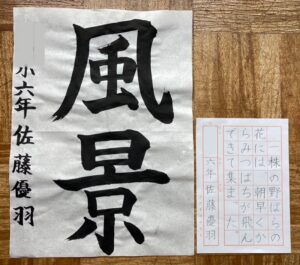 風景
小六年 佐藤優羽
一株の野ばらの
花には 朝早くか
らみつばちが飛ん
できて集ま た
六年 佐藤優羽